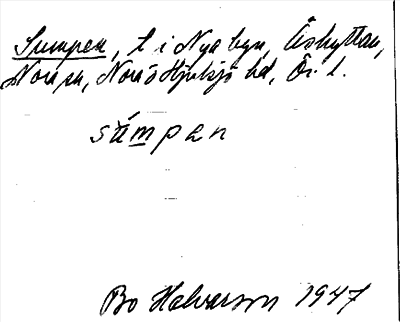 Sumpen, t i Nya byn, Åshyttan,
Nora sn, Nora o Hjulsjö hd, Ör. l.
súmpen
Bo Halvarson 1947